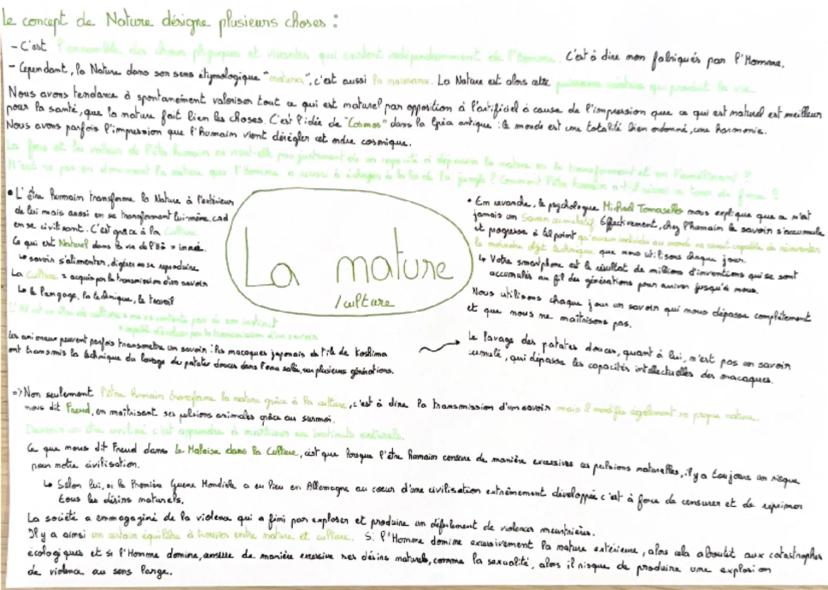 Le concept de Nature désigne plusieurs choses :
- C'est l'ensemble des choses physiques et vivantes qui existent indépendamment de l'Homme. C'est à dire non fabriqués par l'Homme.
- Cependant, la Nature dans son sens étymologique "natura", c'est aussi la naissance. La Nature est alors cette puissance qui produit la vie.
Nous avons tendance à spontanément valoriser tout ce qui est naturel par opposition à l'artificiel à cause de l'impression que ce qui est naturel est meilleur
pour la santé, que la nature fait bien les choses. C'est l'idée de "Cosmos" dans la antique : le monde est une totalité bien ordonné, une harmonie.
Nous avons parfois l'impression que l'humain vient dérégler cet ordre cosmique.
La force et la valeur de l'être humain ne vient-elle pas justement de sa capacité à dépasser la nature en la transformant et en l'améliorant ?
N'est ce pas en dominant la nature que l'Homme a réussi à échapper à la loi de la jungle ? Comment l'être humain a-t-il réussi ce tour de force ?
La nature
/culture
• L'être humain transforme la Nature à l'extérieur
de lui mais aussi en se transformant lui-même, cad
en se civilisant. C'est grâce à la culture
Ce qui est Naturel dans la vie de l'ê = inné.
↳ savoir s'alimenter, digérer ou se reproduire
La culture = acquis par la transmission d'un savoir
↳ le langage, la technique, le travail
L'ê est un être de culture = ne se contente pas de son instinct
= capable d'évoluer par la transmission d'un savoir
Les animaux peuvent parfois transmettre un savoir : les macaques japonais de l'île de Koshima
ont transmis la technique du lavage de patates douces dans l'eau salée, sur plusieurs générations.
• En revanche, le psychologue Michael Tomasello nous expliq que que ce n'est
jamais un savoir cumulatif. Effectivement, chez l'humain le savoir s'accumule
et progresse à tel point qu'aucun individu au monde ne serait capable de réinventer
le moindre objet technique que nous utilisons chaque jour.
↳ Votre smartphone est le résultat de millions d'inventions qui se sont
accumulés au fil des générations pour arriver jusqu'à nous.
Nous utilisons chaque jour un savoir qui nous dépasse complètement
et que nous ne maîtrisons pas.
Le lavage des patates douces, quant à lui, n'est pas un savoir
cumulé, qui dépasse les capacités intellectuelles des macaques.
=> Non seulement l'être humain transforme la nature grâce à la culture, c'est à dire la transmission d'un savoir mais il modifie également sa propre nature
nous dit Freud, en maîtrisant ses pulsions animales grâce au surmoi.
Devenir un être civilisé c'est apprendre à maîtriser ses instincts naturels.
Ce que nous dit Freud dans le Malaise dans la Culture, c'est que lorsque l'être humain censure de manière excessives ces pulsions naturelles, il y a toujours un risque
pour notre civilisation.
↳ Selon lui, si la Première Guerre Mondiale a eu lieu en Allemagne au coeur d'une civilisation extrêmement développée c'est à force de censurer et de réprimer
tous les désirs naturels.
La société a emmagasiné de la violence qui a fini par exploser et produire un déferlement de violences meurtrières.
Il y a ainsi un certain équilibre à trouver entre nature et culture. Si l'Homme domine excessivement la nature extérieure, alors cela aboutit aux catastrophes
écologiques et si l'Homme domine, de manière excessive ses désirs naturels, comme la sexualité, alors il risque de produire une explosion
de violence au sens large.